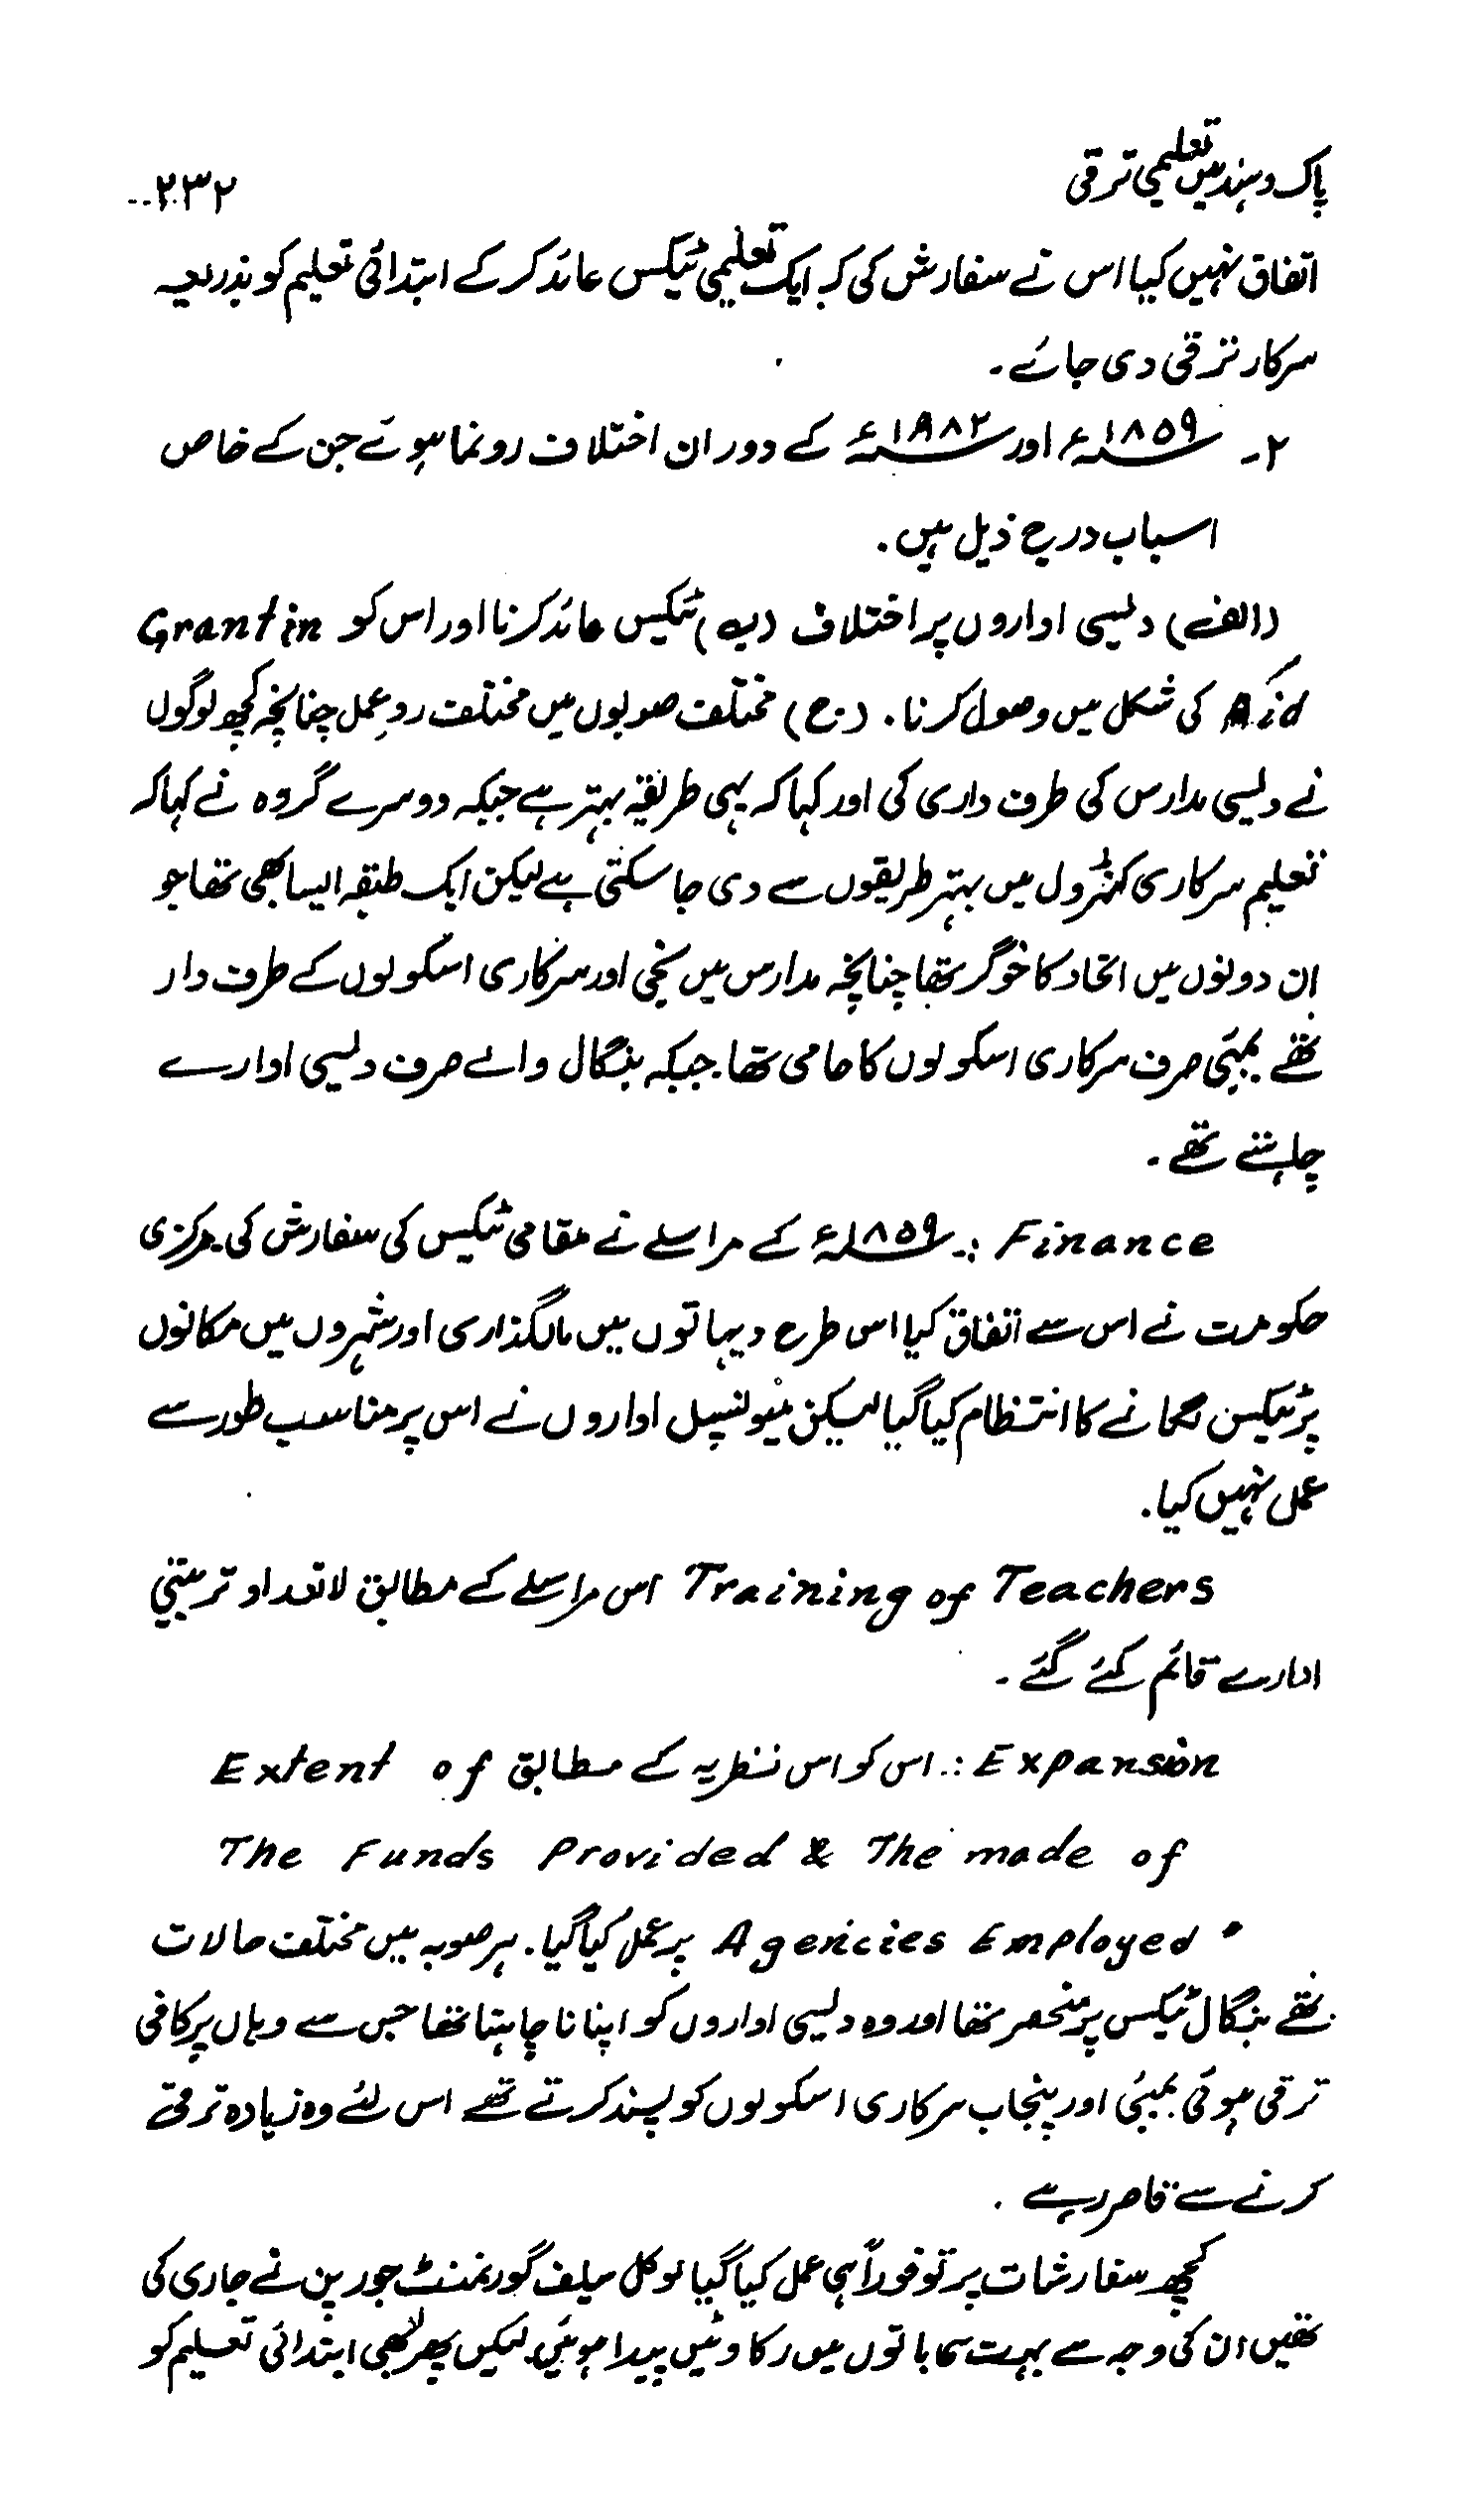 پاک و ہند میں تعلیمی ترقی
۲۳۲
اتفاق نہیں کیا اس نے سفارش کی کہ ایک تعلیمی ٹیکس عائد کر کے ابتدائی تعلیم کو بذریعہ
سرکار ترقی دی جائے۔
۲۔ ۱۸۵۹ء اور ۱۸۸۲ء کے دوران اختلاف رونما ہوئے جن کے خاص
اسباب درج ذیل ہیں۔
(الف) دیسی اداروں پر اختلاف (ب) ٹیکس عائد کرنا اور اس کو Grant in
Aid کی شکل میں وصول کرنا۔ (ج) مختلف صوبوں میں مختلف ردِ عمل چنانچہ کچھ لوگوں
نے دیسی مدارس کی طرف داری کی اور کہا کہ یہی طریقہ بہتر ہے جبکہ دوسرے گروہ نے کہا کہ
تعلیم سرکاری کنٹرول میں بہتر طریقوں سے دی جا سکتی ہے لیکن ایک طبقہ ایسا بھی تھا جو
ان دونوں میں اتحاد کا خوگر تھا چنانچہ مدارس میں نجی اور سرکاری اسکولوں کے طرف دار
تھے بمبئی صرف سرکاری اسکولوں کا حامی تھا۔ جبکہ بنگال والے صرف دیسی ادارے
چاہتے تھے۔
Finance :۔ ۱۸۵۹ء کے مراسلے نے مقامی ٹیکس کی سفارش کی مرکزی
حکومت نے اس سے اتفاق کیا اس طرح دیہاتوں میں مالگذاری اور شہروں میں مکانوں
پر ٹیکس لگانے کا انتظام کیا گیا لیکن میونسپل اداروں نے اس پر مناسب طور سے
عمل نہیں کیا۔
Training of Teachers اس مراسلے کے مطابق لاتعداد تربیتی
ادارے قائم کئے گئے۔
Expansion :۔ اس کو اس نظریہ کے مطابق Extent of
The Funds Provided & The made of
Agencies Employed پر عمل کیا گیا۔ ہر صوبہ میں مختلف حالات
تھے بنگال ٹیکس پر منحصر تھا اور وہ دیسی اداروں کو اپنانا چاہتا تھا جس سے وہاں پر کافی
ترقی ہوئی بمبئی اور پنجاب سرکاری اسکولوں کو پسند کرتے تھے اس لئے وہ زیادہ ترقی
کرنے سے قاصر رہے۔
کچھ سفارشات پر تو فوراً ہی عمل کیا گیا لوکل سیلف گورنمنٹ جو رپن نے جاری کی
تھیں ان کی وجہ سے بہت سی باتوں میں رکاوٹیں پیدا ہوئیں۔ لیکن پھر بھی ابتدائی تعلیم کو